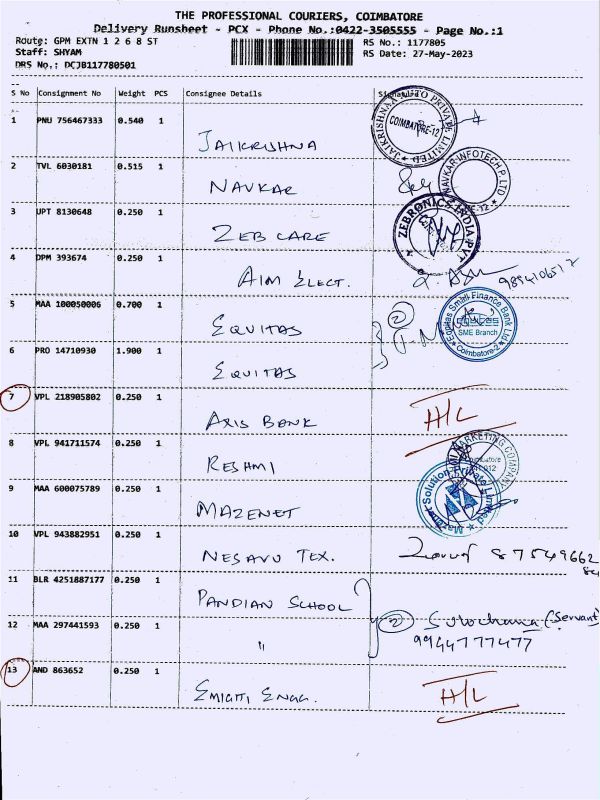 THE PROFESSIONAL COURIERS, COIMBATORE
Delivery Runsheet - PCX - Phone No.:0422-3505555 - Page No.:1
Route: GPM EXTN 1 2 6 8 ST RS No.: 1177805
Staff: SHYAM RS Date: 27-May-2023
DRS No.: DCJB117780501
S No Consignment No Weight PCS Consignee Details
1 PNU 756467333 0.540 1
JAIKRISHNA
JAIKRISHNAA AUTO PRIVATE LIMITED
COIMBATORE-12
2 TVL 6030181 0.515 1
NAVKAR
NAVKAR INFOTECH P. LTD
3 UPT 8130648 0.250 1
ZEB CARE
ZEBRONICS INDIA PVT
4 DPM 393674 0.250 1
AIM ELECT.
5 MAA 100050006 0.700 1
EQUITAS
2
Equitas Small Finance Bank Ltd
SME Branch
Coimbatore-2
6 PRO 14710930 1.900 1
EQUITAS
7 VPL 218905802 0.250 1
AXIS BANK
H/L
8 VPL 941711574 0.250 1
RESHMI
MARKETING COMPANY
9 MAA 600075789 0.250 1
MAZENET
Mazenet Solution Private Limited
10 VPL 943882951 0.250 1
NESAVU TEX.
11 BLR 4251887177 0.250 1
PANDIAN SCHOOL
12 MAA 297441593 0.250 1
"
2 Sulochana (Servant)
9944777477
13 AND 863652 0.250 1
ENGG.
H/L